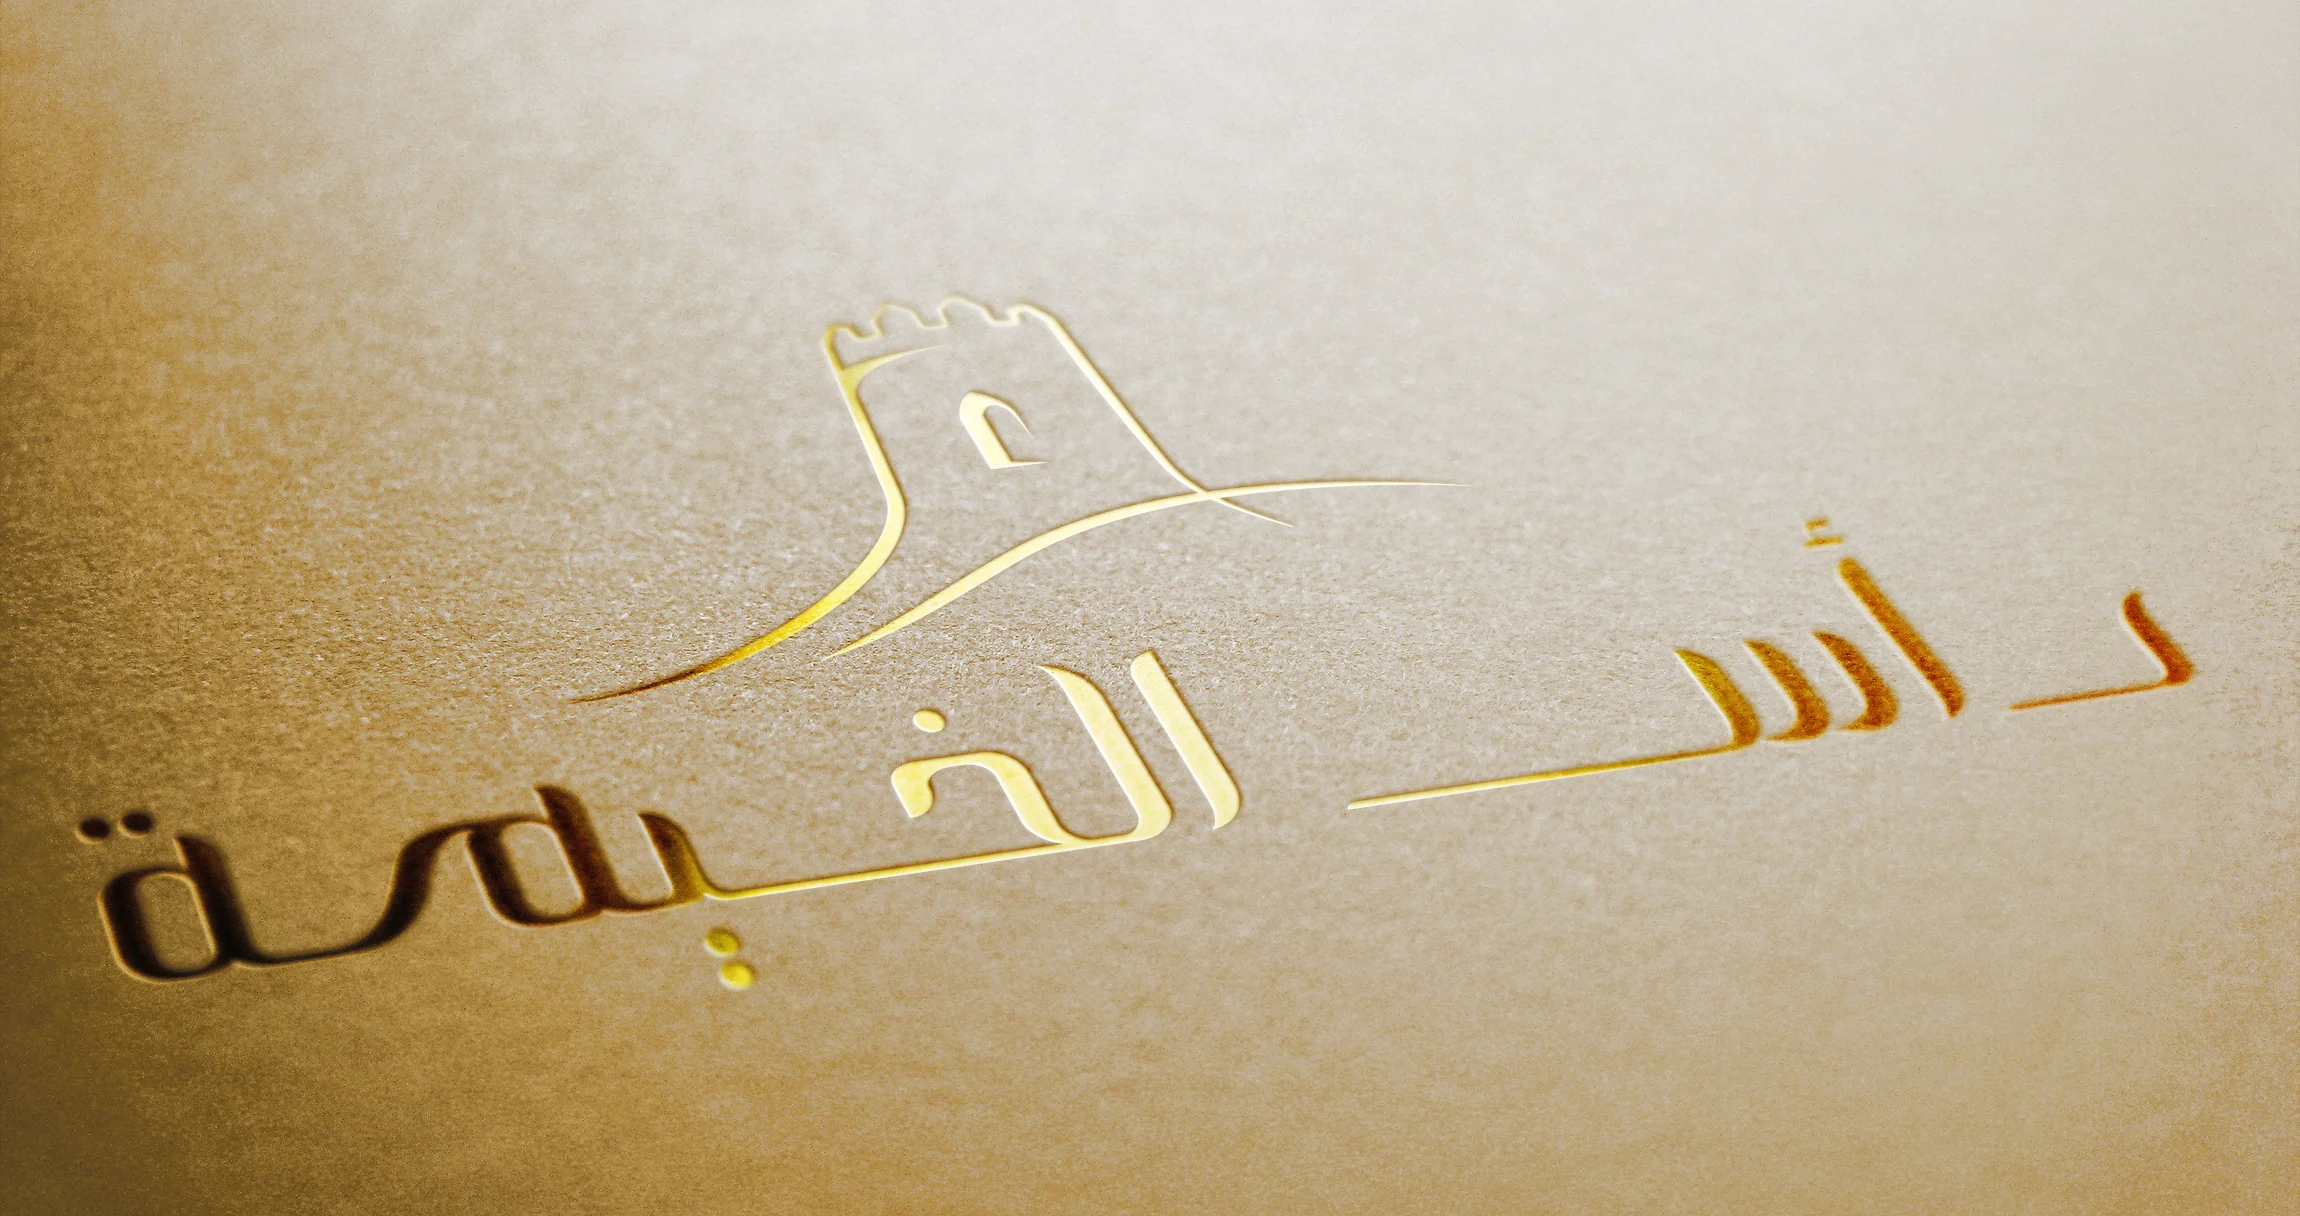 رأس الخيمة